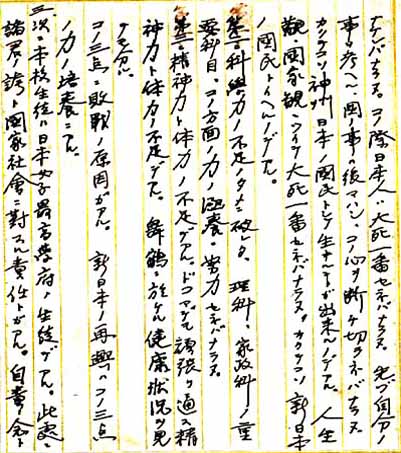 ナケバナラヌ。コノ際日本人ハ大死一番セネバナラヌ。先ヅ自分ノ
事ヲ考ヘ、国事ヲ後マハシ、コノ心ヲ断ケ切ラネバナラヌ
カクテコソ神州日本ノ国民トシテ生キルコトガ出来ルノデアル。人生
観、国家観ニツイテ大死一番セネバナラヌ。カクテコソ新日本
ノ国民トイヘルノデアル。
第二科学ノ力ノ不足ノタメニ破レタ。理科、家政科ノ重
要科目、コノ方面ノ力ノ涵養ニ努力セネバナラヌ。
第三精神力ト体力ノ不足デアル。ドコマデモ頑張リ通ス精
神力ト体力ノ不足デアル。舞鶴ニ於ケル健康状況ヲ見
テモ分ル。
コノ三点ニ敗戦ノ原因ガアル。新日本ノ再興ハコノ三点
ノ力ノ培養ニアル。
三次ニ本校生徒ハ日本女子最高学府ノ生徒デアル。此処ニ
諸君ノ誇ト国家社会ニ対スル責任トガアル。自重